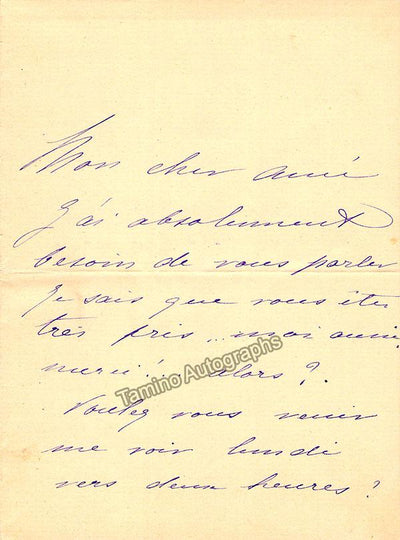 Mon cher ami
J'ai absolument
besoin de vous parler
Je sais que vous êtes
très pris... moi aussi
merci! alors?
Voulez vous venir
me voir lundi
vers deux heures?
Tamino Autographs